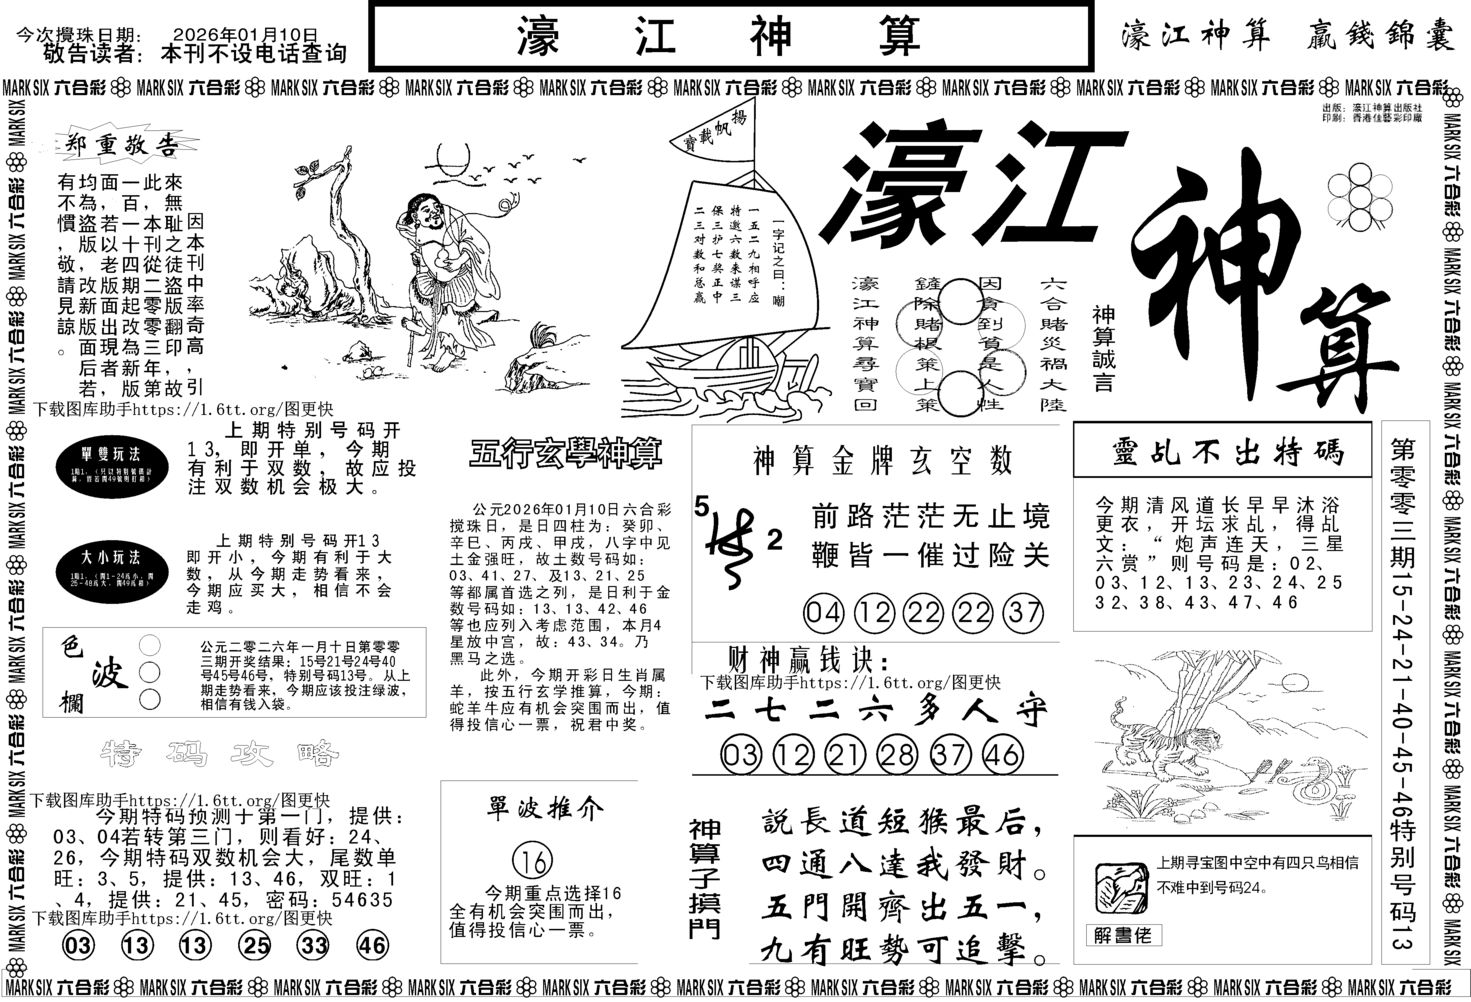 今次攪珠日期： 2026年01月10日
敬告读者：本刊不设电话查询
濠 江 神 算
濠江神算 贏錢錦囊
MARK SIX 六合彩 MARK SIX 六合彩 MARK SIX 六合彩 MARK SIX 六合彩 MARK SIX 六合彩 MARK SIX 六合彩 MARK SIX 六合彩 MARK SIX 六合彩 MARK SIX 六合彩 MARK SIX 六合彩 MARK SIX 六合彩
出版：濠江神算出版社
印刷：香港佳藝彩印廠
郑重敬告
因本刊中率奇高，引
來無耻之徒盜版翻印，故
此，本刊從二零零三年第
一百一十四期起改為新版
面，若以老版面出現者，若
均為盜版，改新版面后
有不慣，敬請見諒。
揚帆載寶
一字记之曰：嘲
一五二九相呼应
特邀六数来谋三
保三护七奖正中
二三对数和总赢
濠江神算
六合賭災禍大陸
因貪到貧是人性
鏟除賭根策上策
濠江神算尋寶回
神算誠言
下载图库助手https://1.6tt.org/图更快
單雙玩法
上期特别号码开
13，即开单，今期
有利于双数，故应投
注双数机会极大。
大小玩法
上期特别号码开13
即开小，今期有利于大
数，从今期走势看来，
今期应买大，相信不会
走鸡。
色波欄
公元二零二六年一月十日第零零
三期开奖结果：15号21号24号40
号45号46号，特别号码13号。从上
期走势看来，今期应该投注绿波，
相信有钱入袋。
特码攻略
下载图库助手https://1.6tt.org/图更快
今期特码预测十第一门，提供：
03、04若转第三门，则看好：24、
26，今期特码双数机会大，尾数单
旺：3、5，提供：13、46，双旺：1
、4，提供：21、45，密码：54635
下载图库助手https://1.6tt.org/图更快
03 13 13 25 33 46
五行玄學神算
公元2026年01月10日六合彩
搅珠日，是日四柱为：癸卯、
辛巳、丙戌、甲戌，八字中见
土金强旺，故土数号码如：
03、41、27、及13、21、25
等都属首选之列，是日利于金
数号码如：13、13、42、46
等也应列入考虑范围，本月4
星放中宫，故：43、34。乃
黑马之选。
此外，今期开彩日生肖属
羊，按五行玄学推算，今期：
蛇羊牛应有机会突围而出，值
得投信心一票，祝君中奖。
單波推介
16
今期重点选择16
全有机会突围而出，
值得投信心一票。
神算金牌玄空数
5
2
前路茫茫无止境
鞭皆一催过险关
04 12 22 22 37
财神赢钱诀：
下载图库助手https://1.6tt.org/图更快
二七二六多人守
03 12 21 28 37 46
神算子摸門
説長道短猴最后，
四通八達我發財。
五門開齊出五一，
九有旺勢可追擊。
靈乩不出特碼
今期清风道长早早沐浴
更衣，开坛求乩，得乩
文：“炮声连天，三星
六赏”则号码是：02、
03、12、13、23、24、25
32、38、43、47、46
上期寻宝图中空中有四只鸟相信
不难中到号码24。
解書佬
第零零三期15-24-21-40-45-46特别号码13
MARK SIX 六合彩 MARK SIX 六合彩 MARK SIX 六合彩 MARK SIX 六合彩 MARK SIX 六合彩 MARK SIX 六合彩 MARK SIX 六合彩 MARK SIX 六合彩 MARK SIX 六合彩 MARK SIX 六合彩 MARK SIX 六合彩